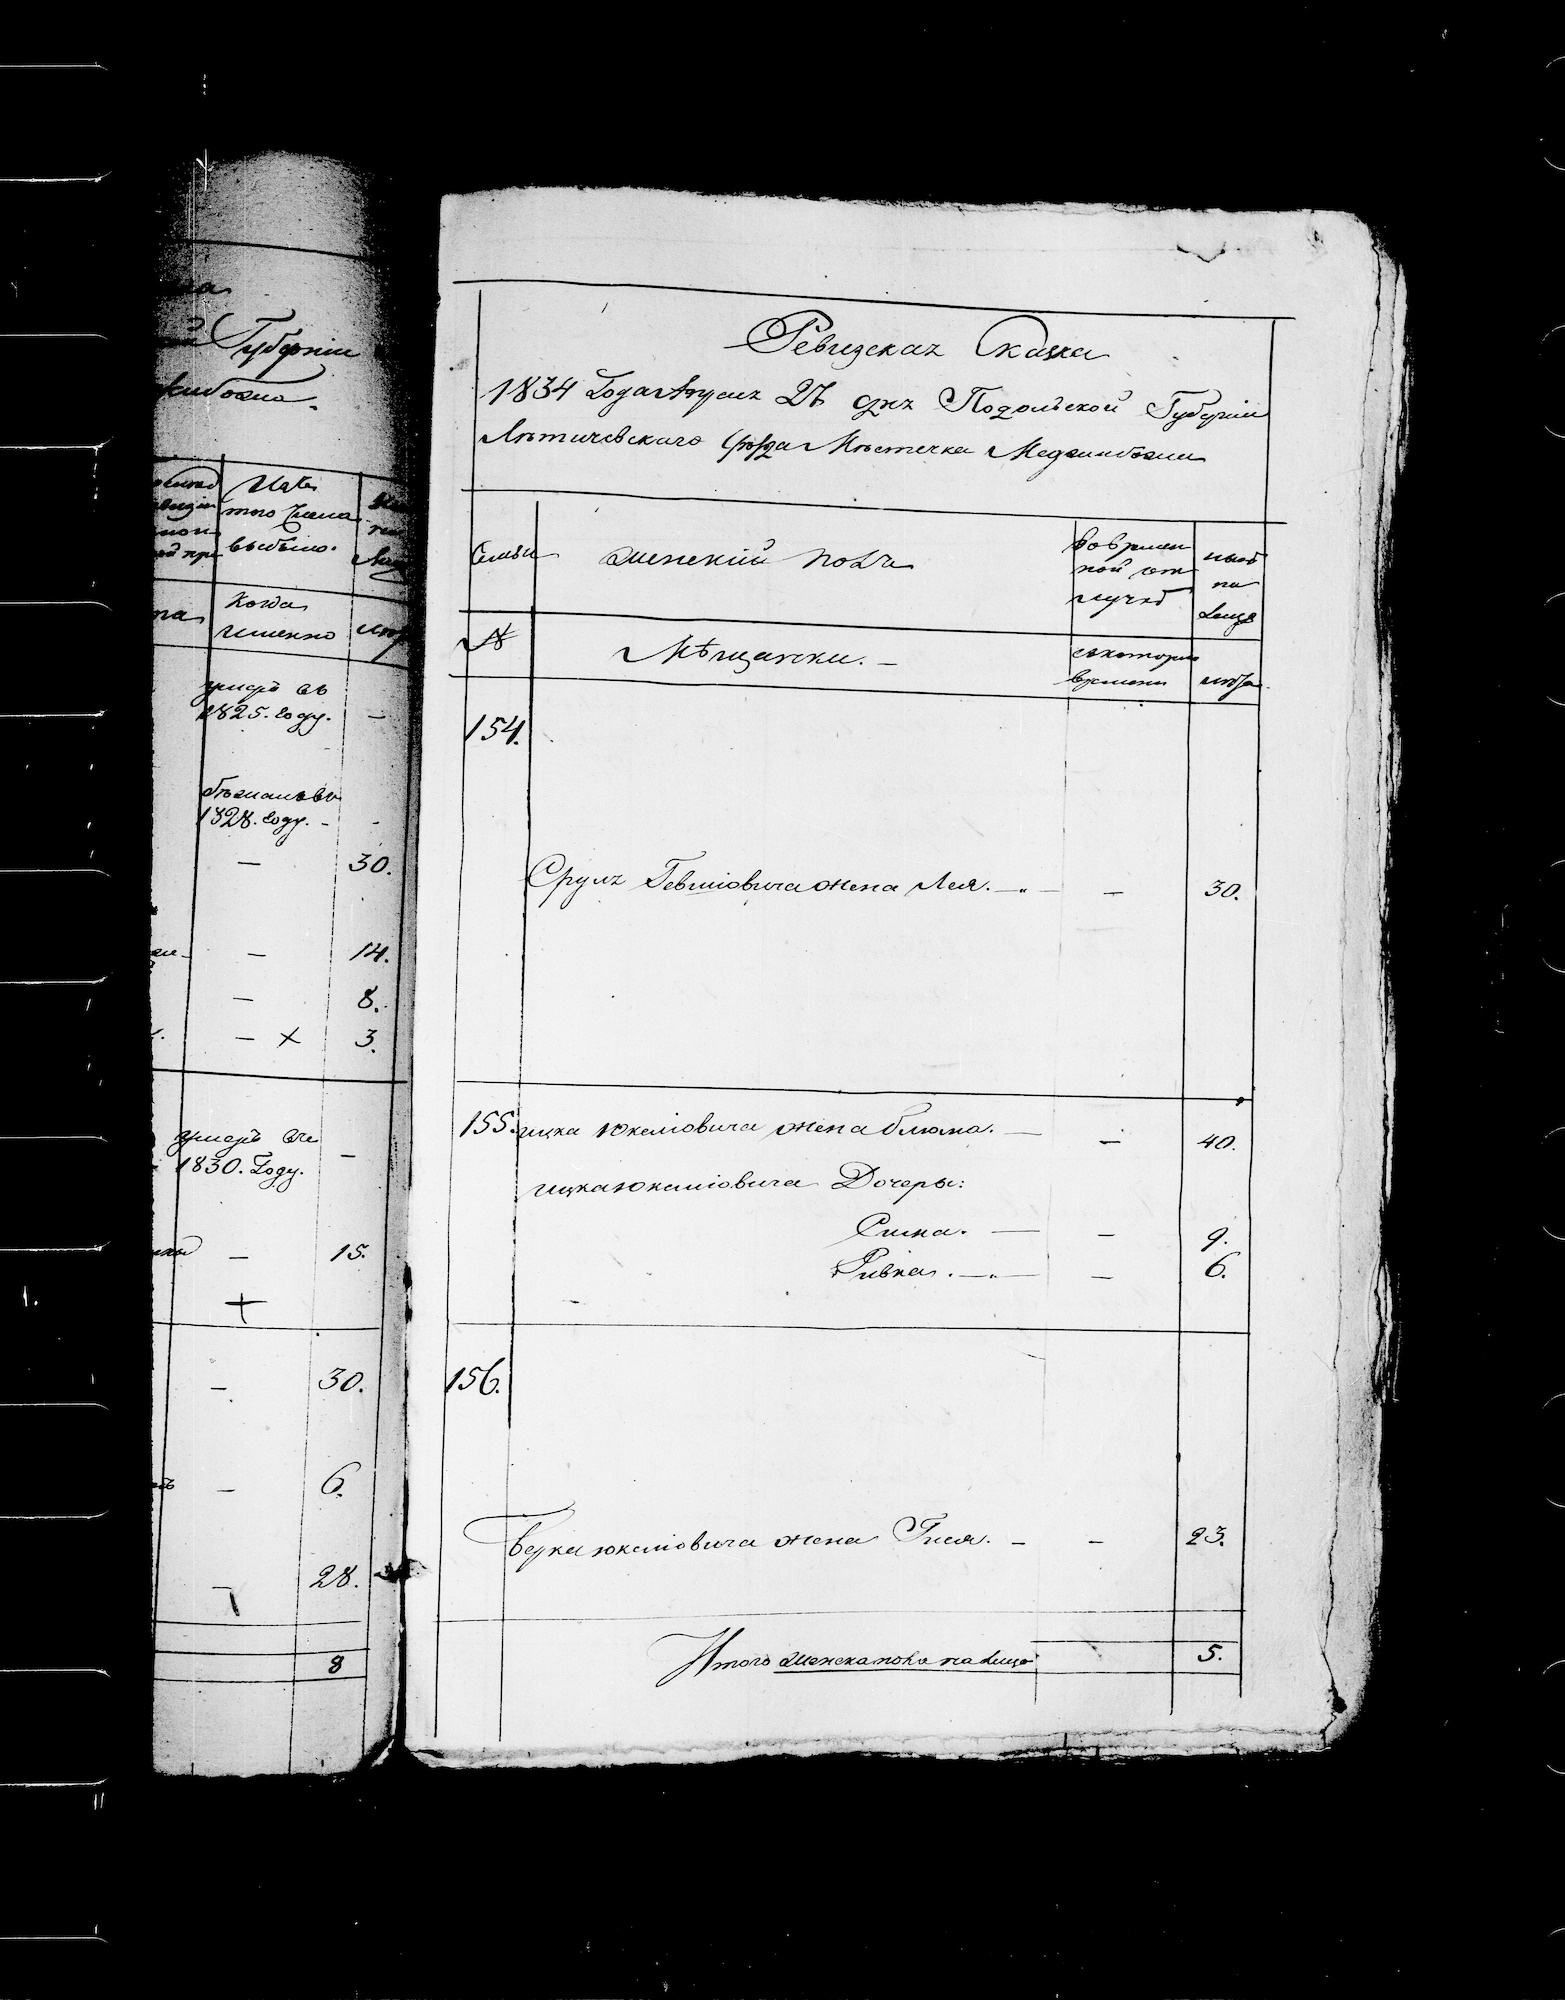 Губерніи
Изъ
того числа
выбыло.
Когда
именно
умеръ въ
1825. году.
—
бежалъ въ
1828. году. -
— 30.
— 14.
— 8.
— × 3.
умеръ въ
1830. Году.
— 15.
+
— 30.
— 6.
— 28.
8
Ревизская Сказка
1834 Года Апреля 25 дня Подольской Губерніи
Летичевскаго Уезда Местечка Меджибожа
Семьи
Женскій полъ
Во времен
ной от
лучке
ныне
на
лицо
№
Мѣщанки. —
съ котораго
времени
лета
154.
Сруля Гевшіовича жена Лея. — — 30.
155. ицка Юкеліовича жена блюма. — — 40.
ицка юкеліовича Дочеры:
Сима. — — 9.
Ривка. — — 6.
156.
Берка юкеліовича жена Гися. — — 23.
Итого женска пола на лицо 5.